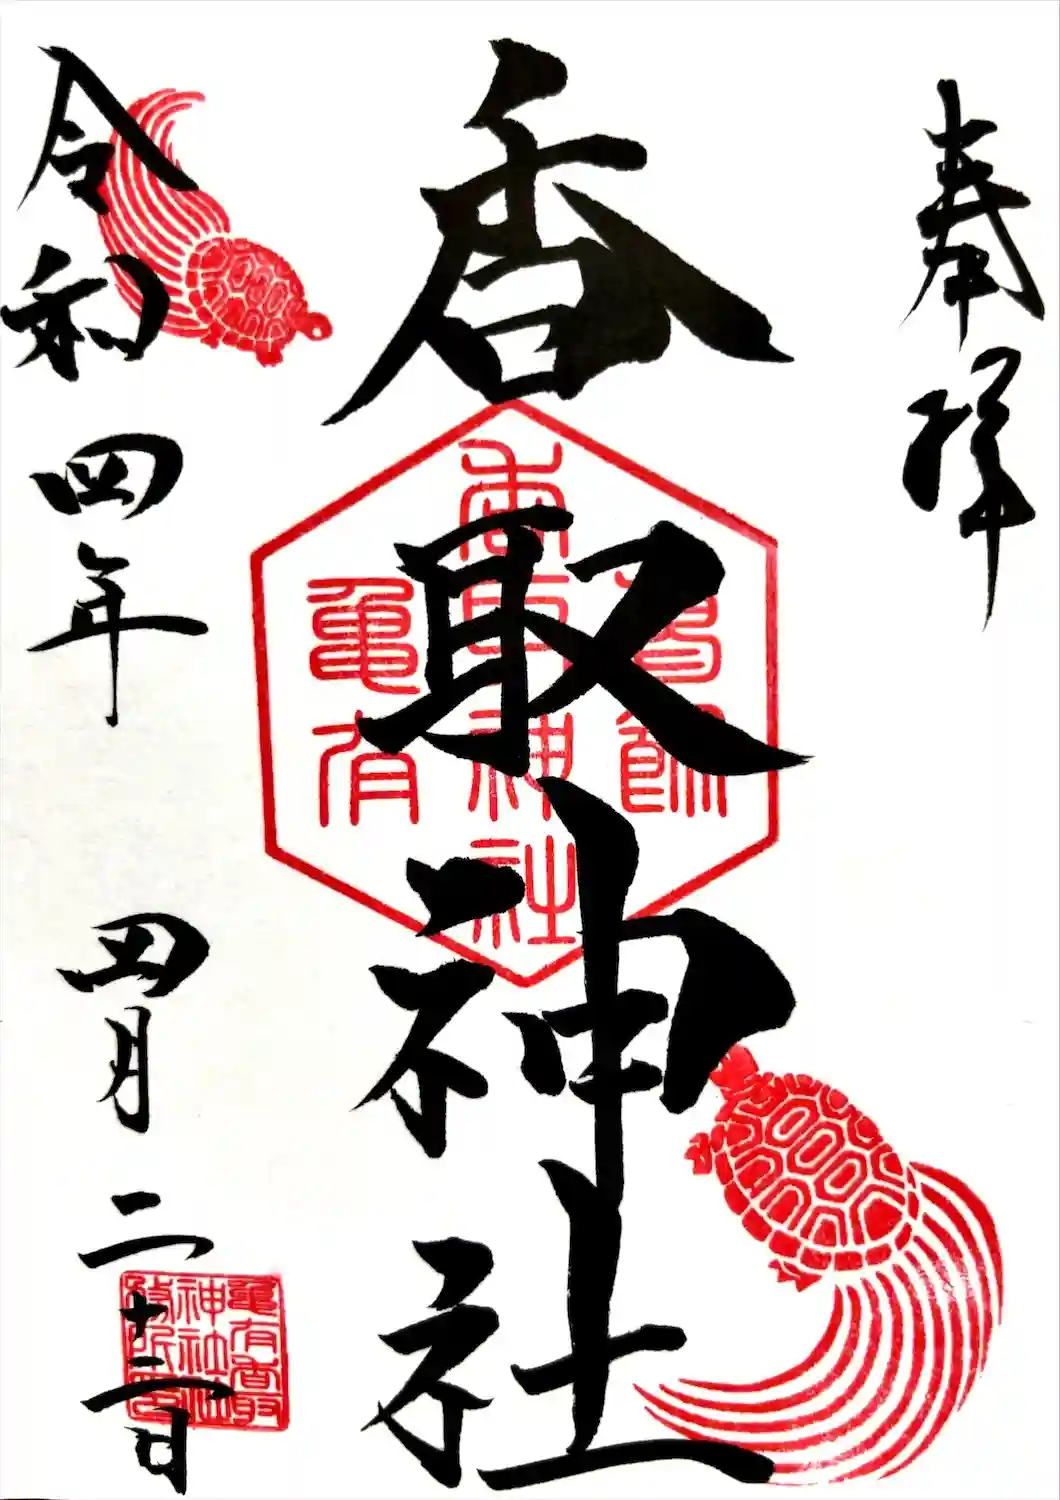 奉拝
香取神社
葛飾
香取神社
亀有
令和四年 四月二十二日
亀有香取
神社社
務所印